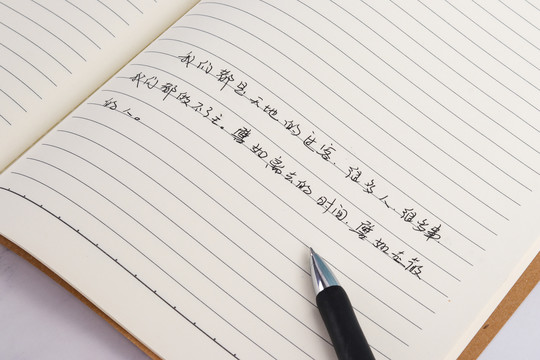 我们都是天地的过客、很多人、很多事
我们都做不了主。譬如离去的时间、譬如走散
的人。